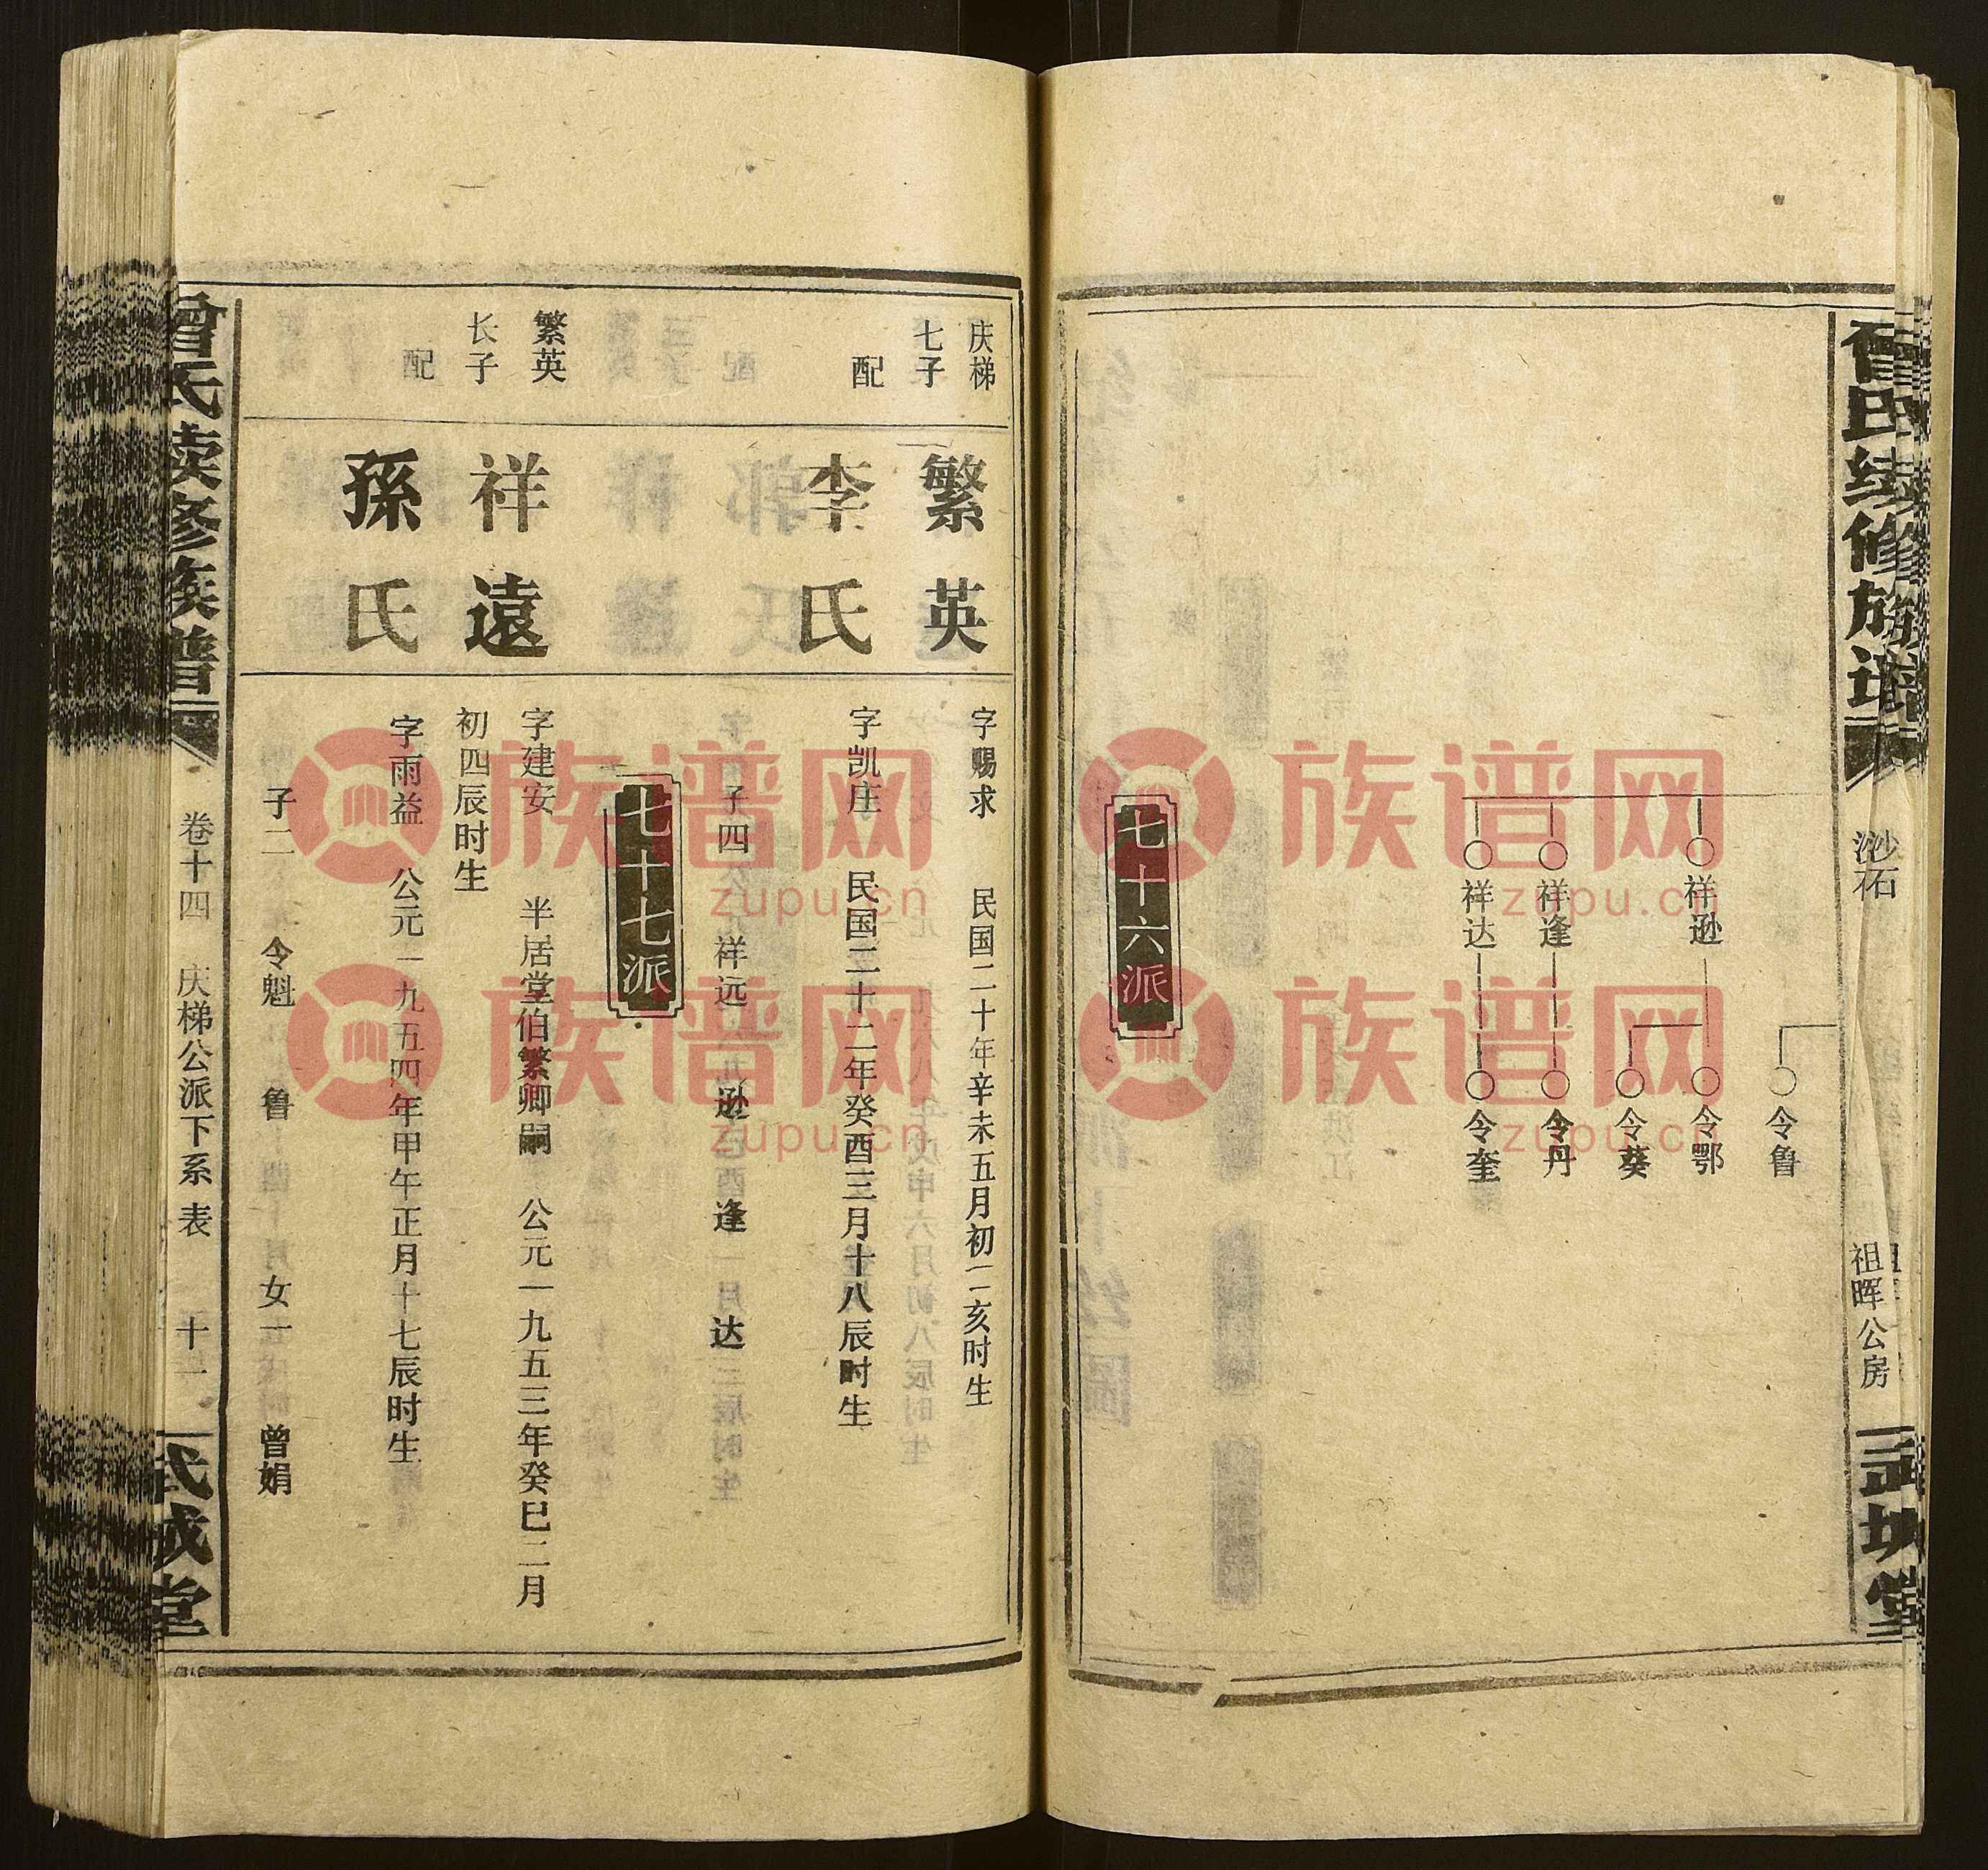 曾氏续修族谱
渺石
祖晖公房
武城堂
祥逊
祥逢
祥达
令鲁
令鄂
令葵
令丹
令奎
七十六派
庆梯
七子
繁英
字赐求 民国二十年辛未五月初二亥时生
配
李氏
字凯庄 民国二十二年癸酉三月十八辰时生
子四 祥远 逊 逢 达
七十七派
繁英
长子
祥遠
字建安 半居堂伯繁卿嗣 公元一九五三年癸巳二月
初四辰时生
配
孫氏
字雨益 公元一九五四年甲午正月十七辰时生
子二 令魁 鲁 女一 曾娟
曾氏续修族谱
卷十四 庆梯公派下系表 十一
武城堂
族谱网
zupu.cn
族谱网
zupu.cn
族谱网
zupu.cn
族谱网
zupu.cn